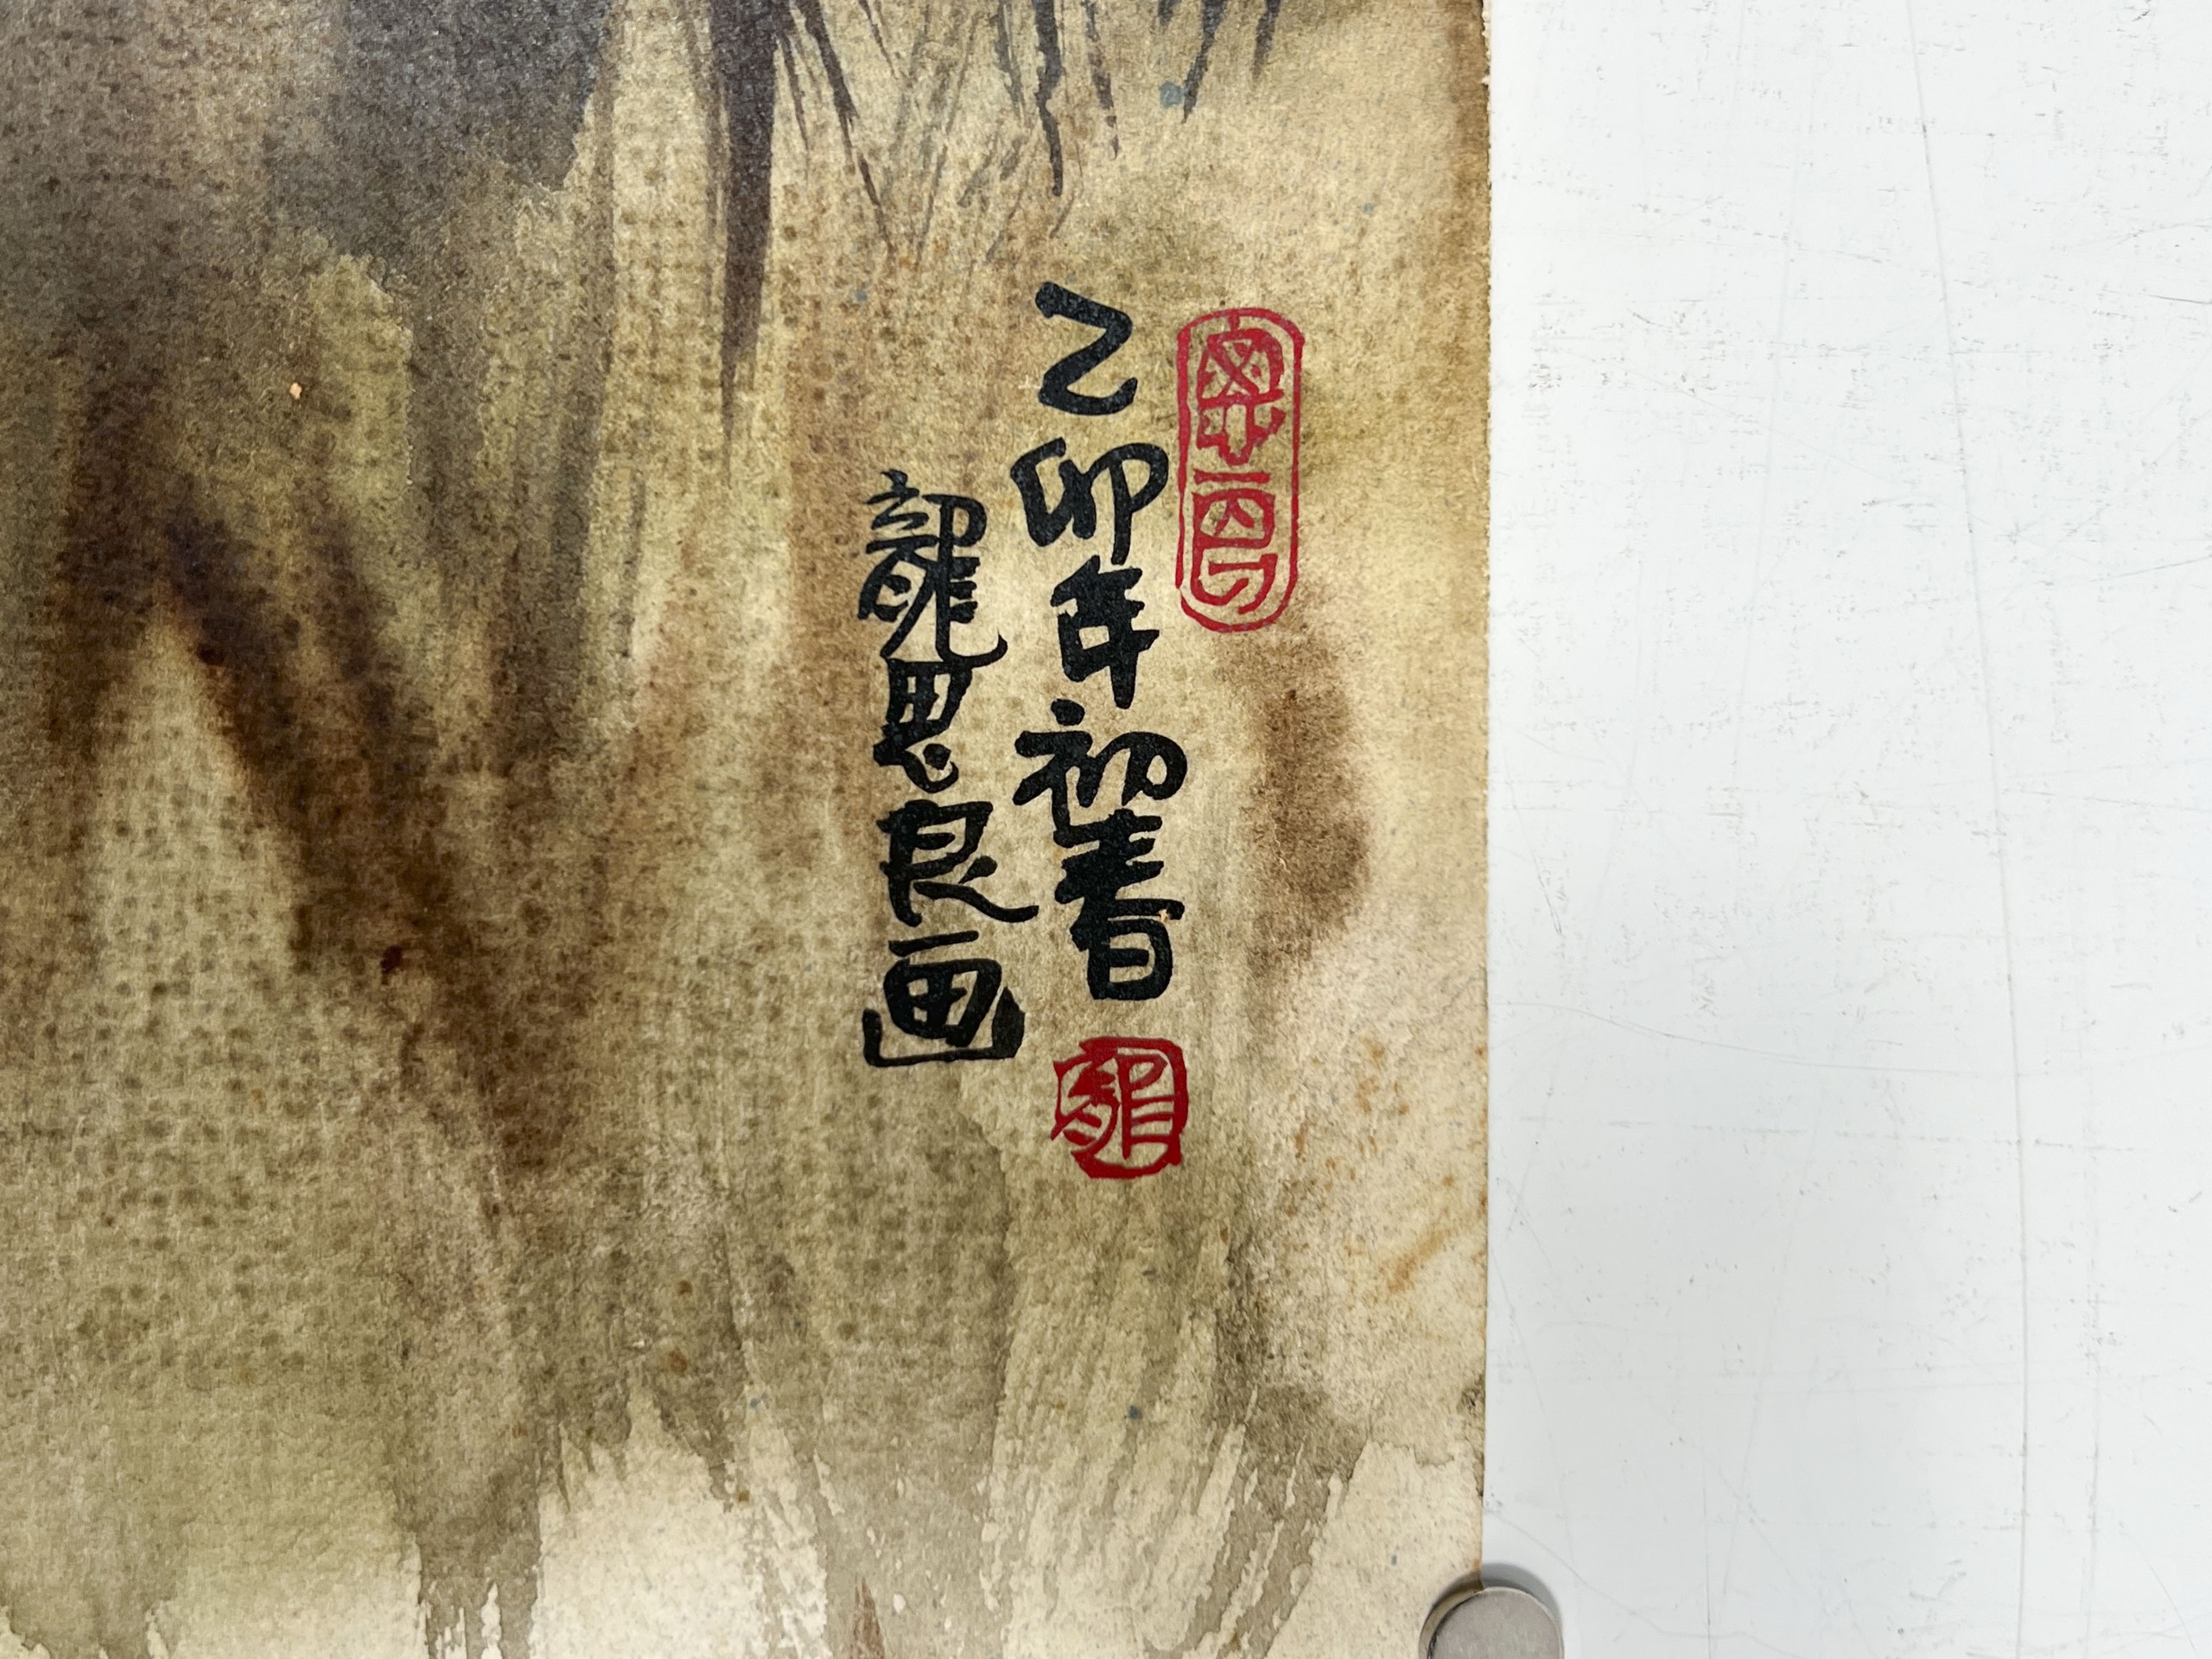 乙卯年初春
龍思良画
龍